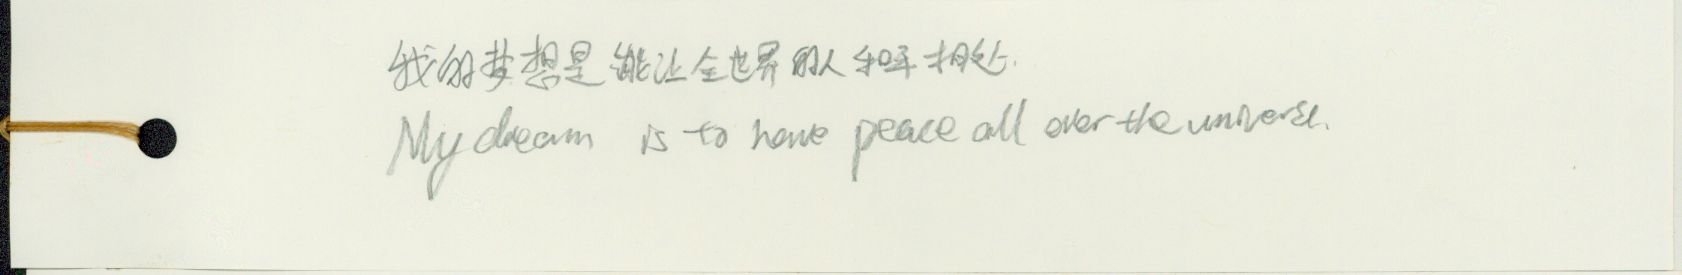 我的梦想是能让全世界的人和平相处.
My dream is to have peace all over the universe.